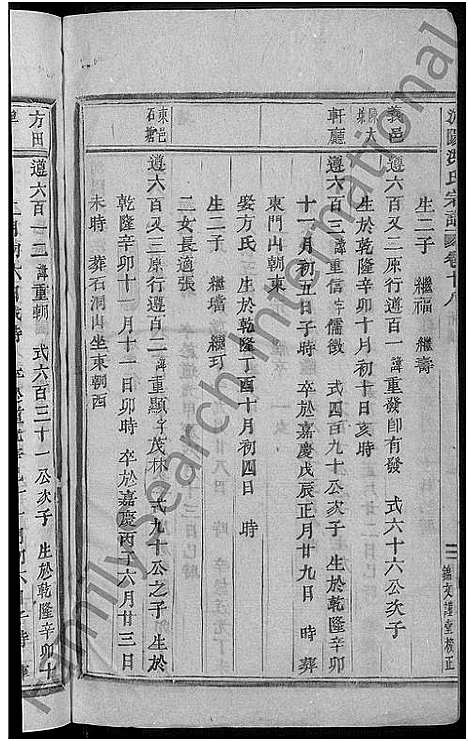 生二子 繼福 繼壽
義邑 遵六百又二原行遵百一 諱重發卽有發 式六十六公次子
生於乾隆辛卯十月初十日亥時
軒廳 遵六百三 諱重信字儒徵 式四百九十公次子 生於乾隆辛卯
十一月初五日子時 卒於嘉慶戊辰正月廿九日 時 葬
東門山朝東
娶方氏 生於乾隆丁酉十月初四日 時
生二子 繼璫 繼玎
二女長適張
東邑石塘 遵六百又三原行遵百二 諱重顯字茂林 式九十公之子 生於
乾隆辛卯十一月十一日卯時 卒於嘉慶丙子六月廿三日
未時 葬石洞山坐東朝西
方田 遵六百一二 諱重朝 式六百三十一公次子 生於乾隆辛卯十
Family Search International